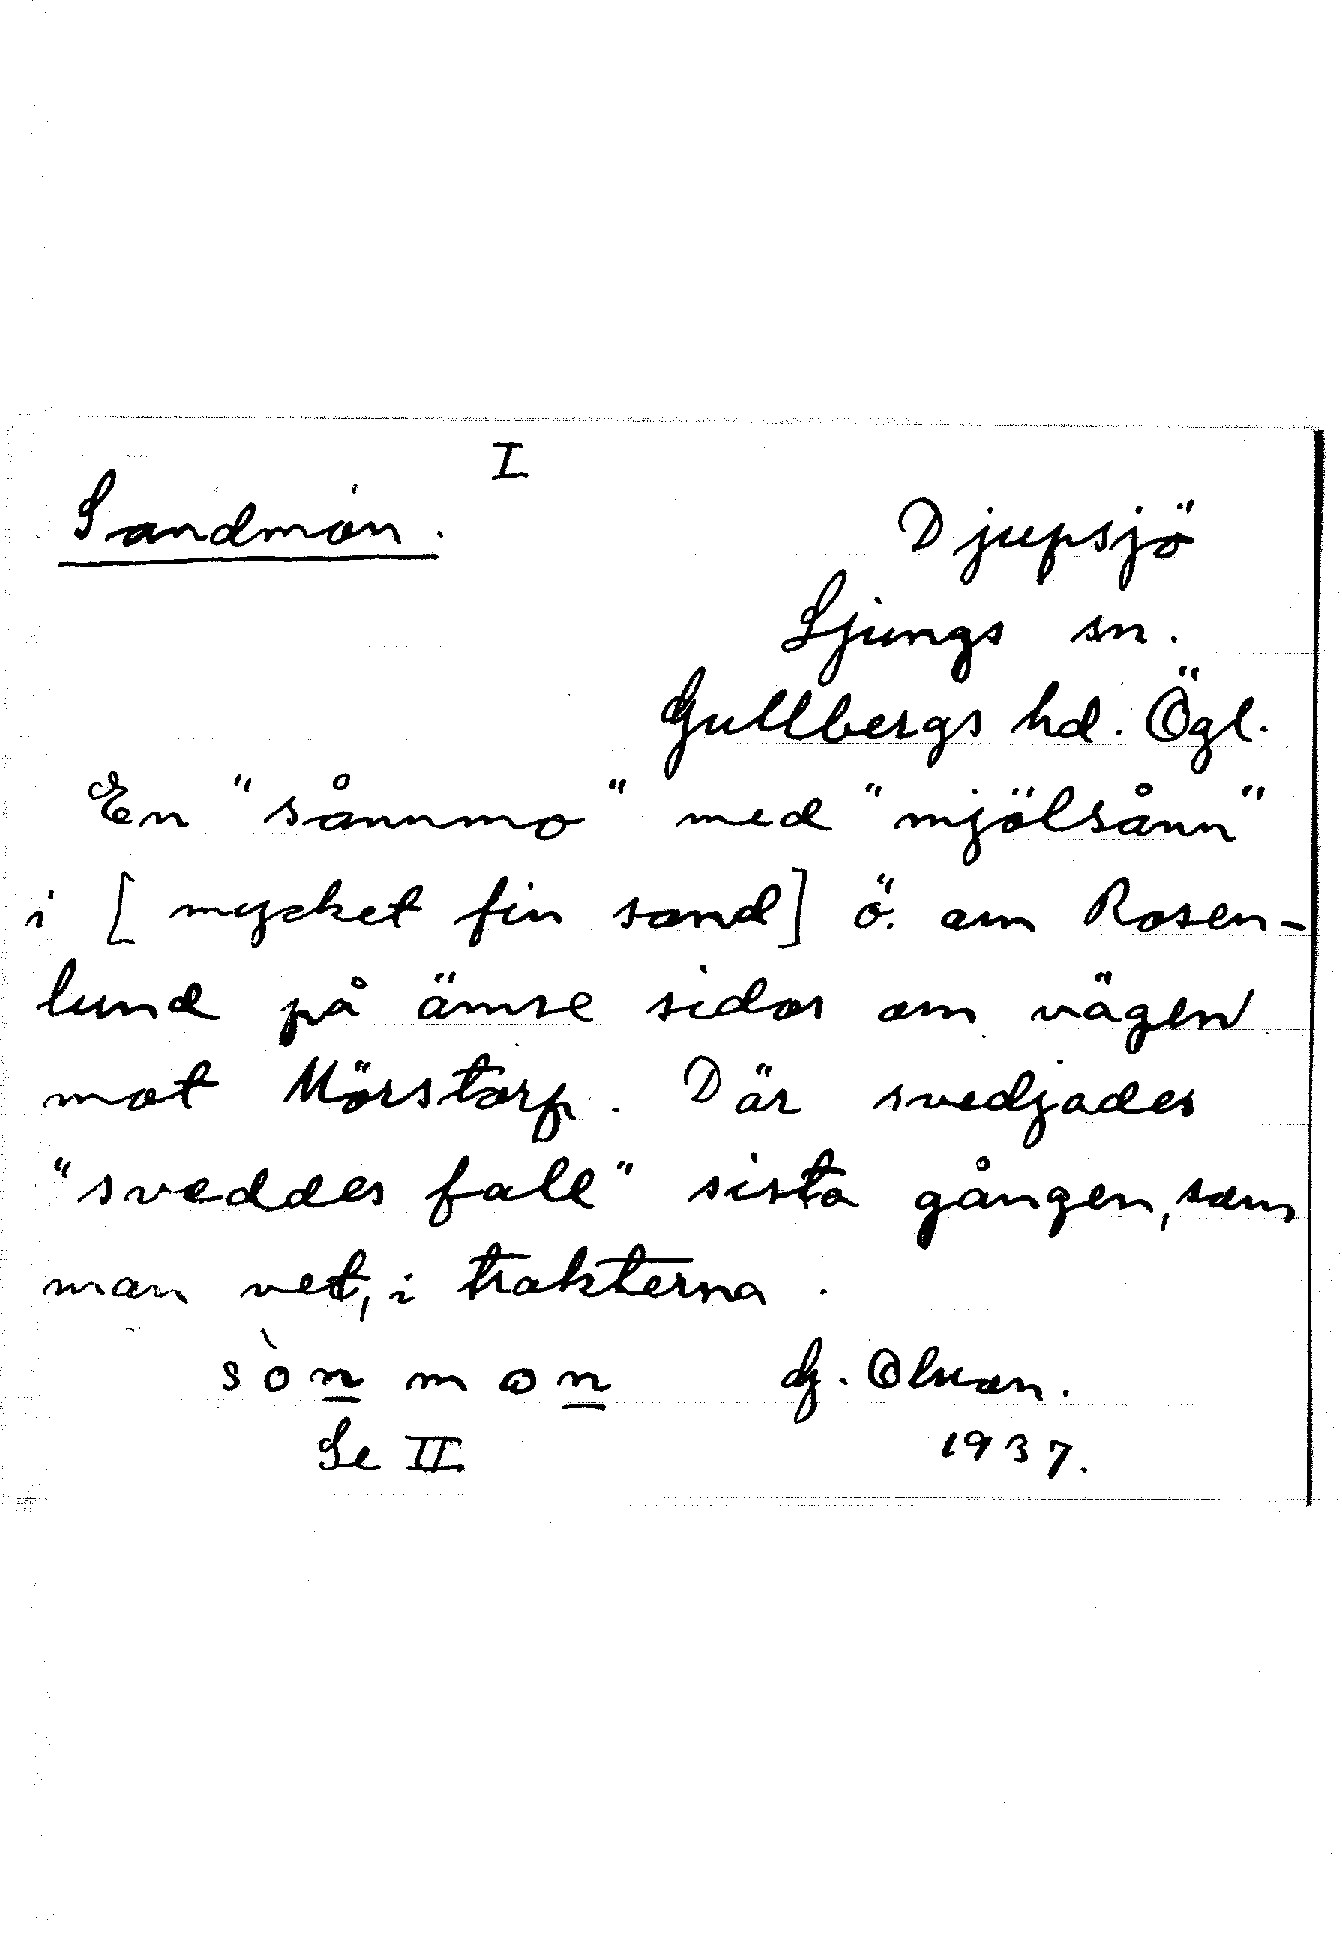 I
Sandmon.
Djupsjö
Ljungs sn.
Gullbergs hd. Ögl.
En "sånnmo" med "mjölsånn"
i [mycket fin sand] ö. om Rosen-
lund på ömse sidor om vägen
mot Mörstorp. Där svedjades
"sveddes fall" sista gången, som
man vet, i trakterna.
sònmon G. Olson.
Se II 1937.